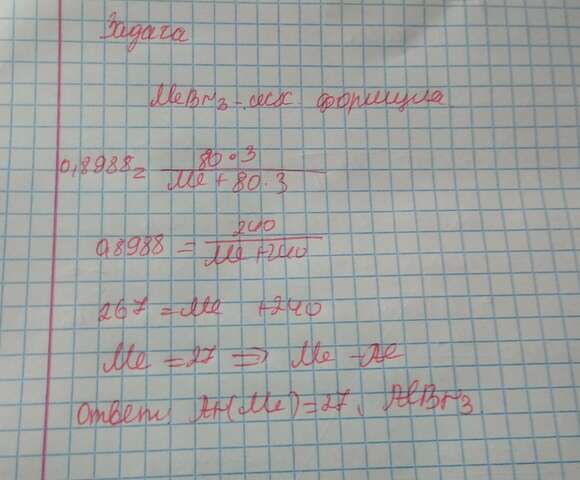 Задача
MeBr3 - исх формула
0,8988 = 80·3 / Me + 80·3
0,8988 = 240 / Me + 240
267 = Me + 240
Me = 27 => Me - Al
Ответ: Ar(Me) = 27, AlBr3